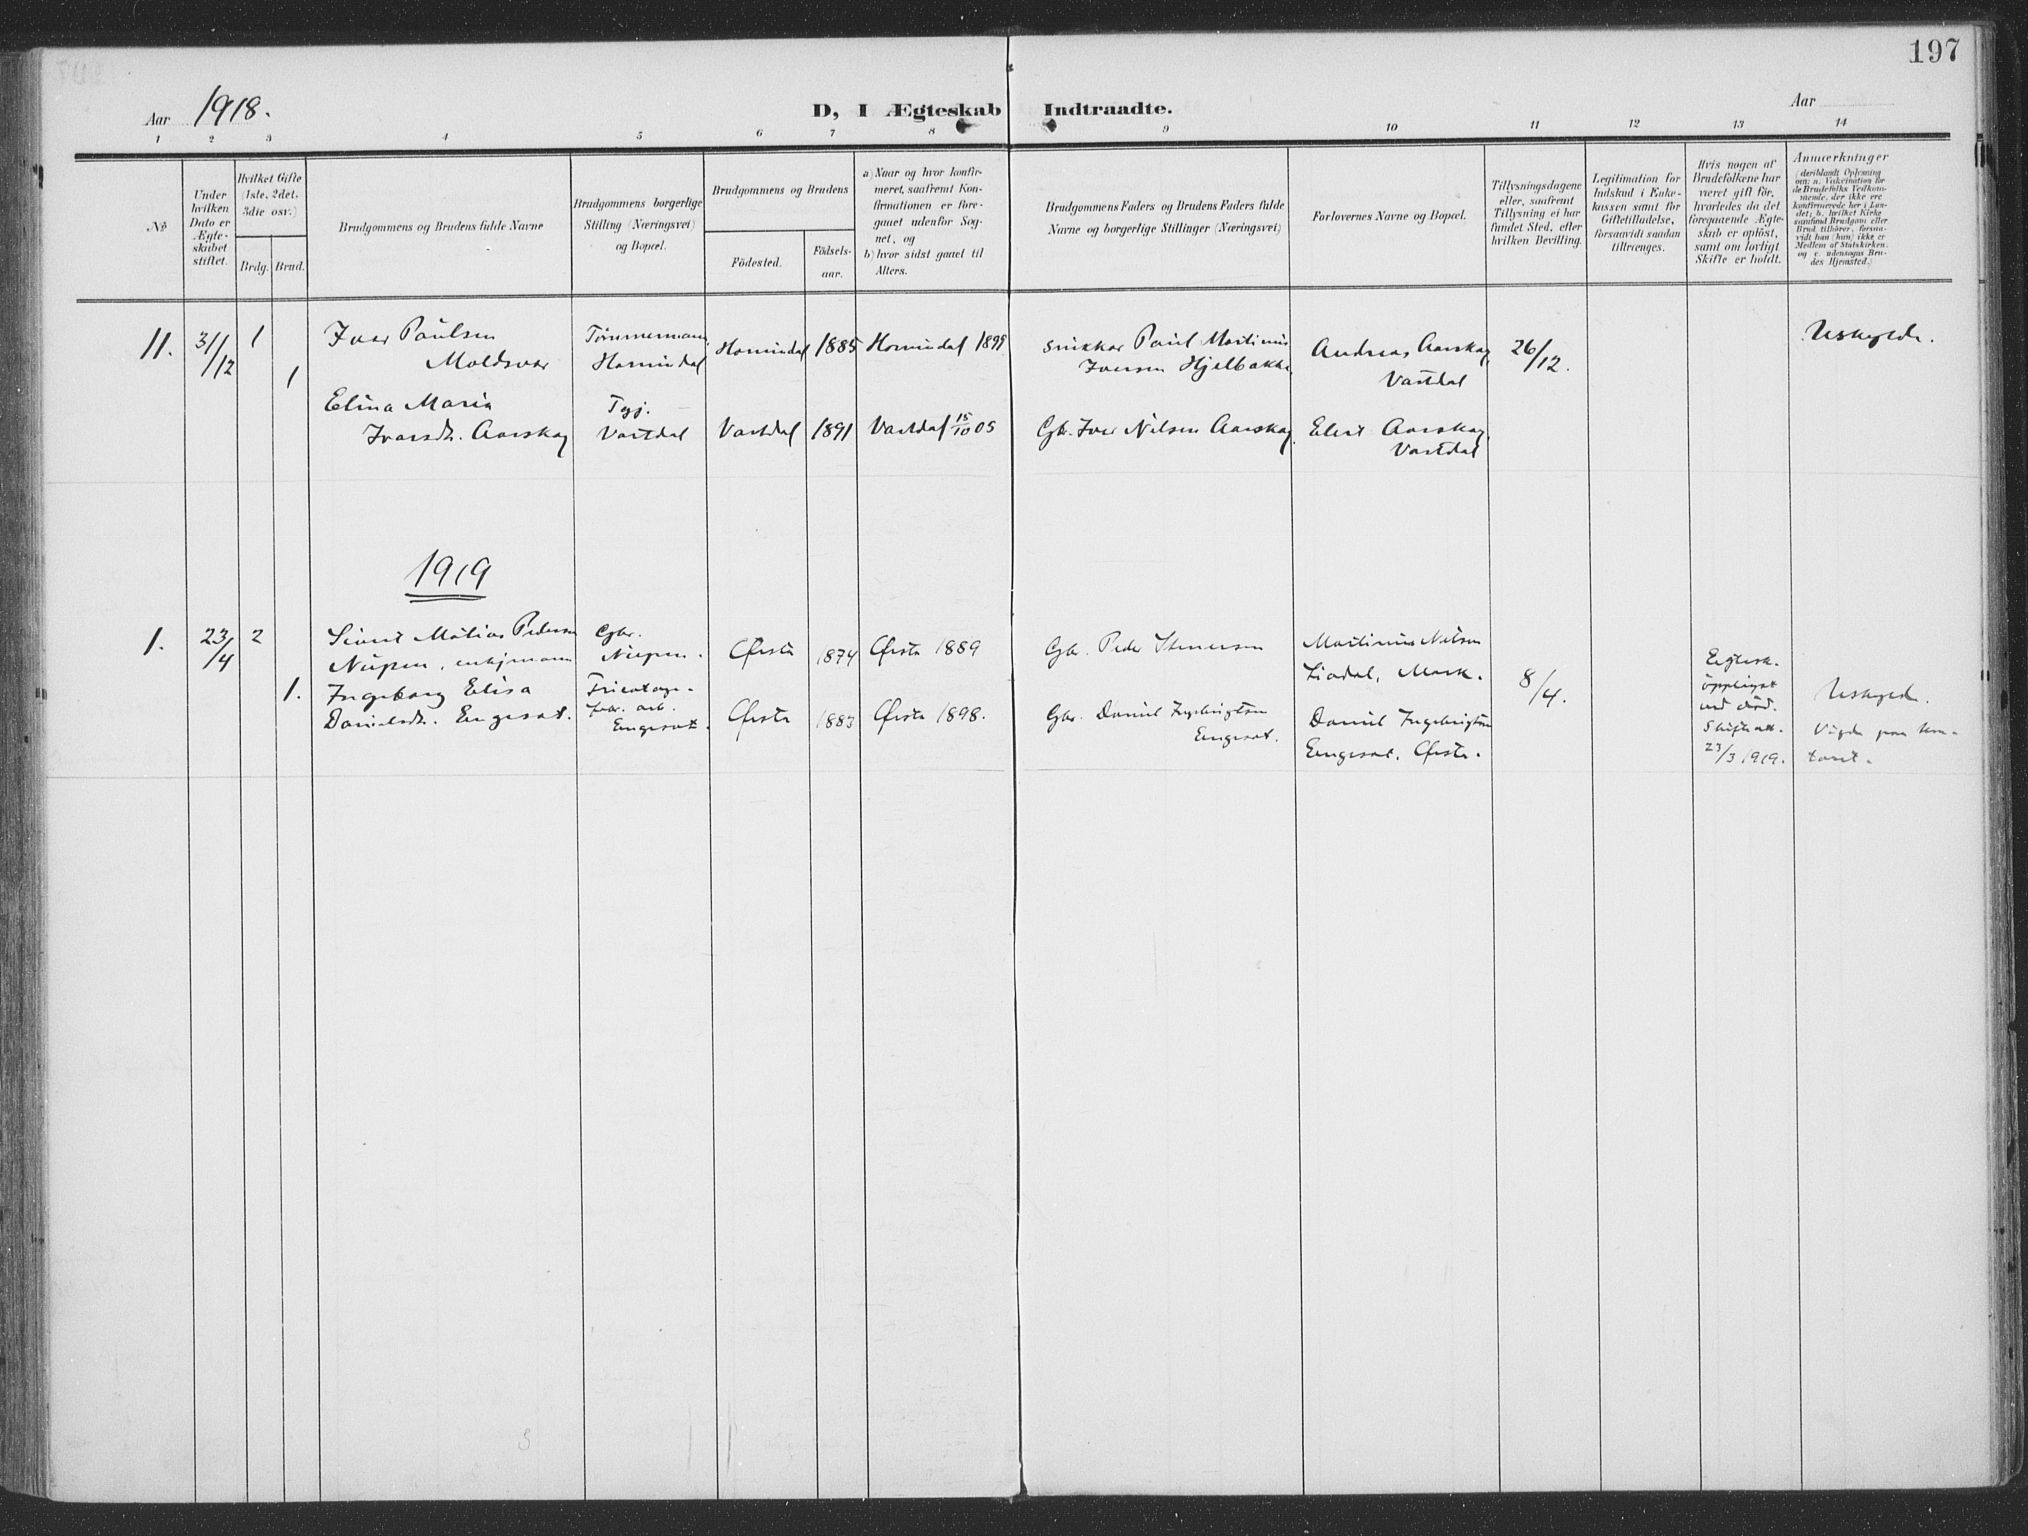 197
Aar 1918.
D, I Ægteskab Indtraadte.
Aar
1 2 3 4 5 6 7 8 9 10 11 12 13 14
No
Under
hvilken
Dato er
Ægte-
skabet
stiftet.
Hvilket Gifte
(1ste, 2det,
3die osv.)
Brdg. Brud.
Brudgommens og Brudens fulde Navne
Brudgommens borgerlige
Stilling (Næringsvei)
og Bopæl.
Brudgommens og Brudens
Födested.
Födsels-
aar.
a) Naar og hvor konfir-
meret, saafremt Kon-
firmationen er fore-
gaaet udenfor Sog-
net, og
b) hvor sidst gaaet til
Alters.
Brudgommens Faders og Brudens Faders fulde
Navne og borgerlige Stillinger (Næringsvei)
Forlovernes Navne og Bopæl.
Tillysningsdagene
eller, saafremt
Tillysning ei har
fundet Sted, efter
hvilken Bevilling.
Legitimation for
Indskud i Enke-
kassen samt for
Giftetilladelse,
forsaavidt saadan
tiltrænges.
Hvis nogen af
Brudefolkene har
været gift för,
hvorledes da det
foregaaende Ægte-
skab er oplöst,
samt om lovligt
Skifte er holdt.
Anmerkninger
(deriblandt Oplysning
om: a. Vakcination for
de Brudefolks Vedkom-
mende, der ikke ere
konfirmerede her i Lan-
det; b. hvilket Kirke
samfund Brudgom eller
Brud tilhörer, forsaa-
vidt han (hun) ikke er
Medlem af Statskirken,
og c. udensogns Bru-
des Hjemsted.)
11. 31/12 1 Ivar Paulsen
Moldsvor
Tømmermann,
Hornindal
Hornindal 1885 Hornindal 1899
Snikkar Paul Martinus
Iversen Hjelbakke
Andreas Aarskog
Vartdal
26/12.
Uskylde.
1
Elina Maria
Ivarsdt. Aarskog
Tyj.
Vartdal
Vartdal 1891 Vartdal 15/10 05
Gbr. Iver Nilsen Aarskog
Elert Aarskog
Vartdal
1919
1. 23/4 2 Sivert Matias Pedersen
Nupen, enkjemann
Gbr.
Nupen.
Ørsta 1874 Ørsta 1889
Gbr. Peder Steinersen
Martinus Nilsen
Liadal, Mork.
8/4.
Egtesk.
öpplöyst
ved död.
Skift att.
23/3 1919.
Uskyld.
Vigde paa kon-
toret.
1. Ingeborg Elisa
Danielsdt. Engeset.
Tricotage-
fabr. arb.
Engeset.
Ørsta 1883 Ørsta 1898.
Gbr. Daniel Ingebrigtsen
Engeset.
Daniel Ingebrigtsen
Engeset. Ørsta.